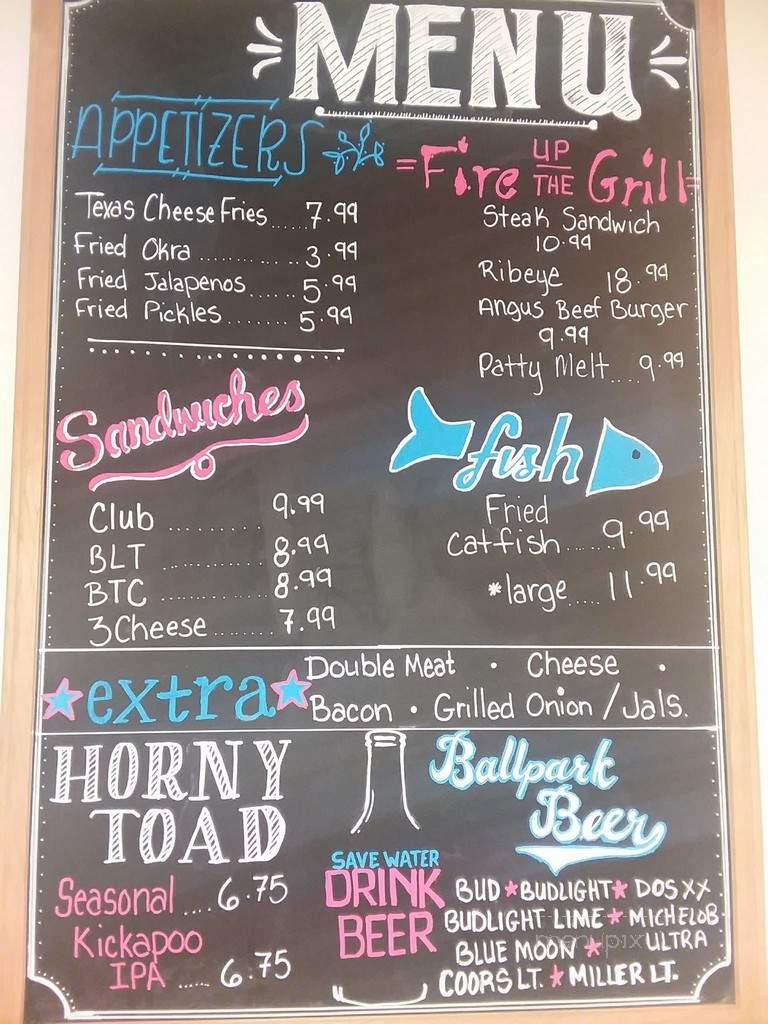 MENU
APPETIZERS
Texas Cheese Fries......7.99
Fried Okra............3.99
Fried Jalapenos......5.99
Fried Pickles........5.99
Fire UP THE Grill
Steak Sandwich
10.99
Ribeye 18.99
Angus Beef Burger
9.99
Patty Melt....9.99
Sandwiches
Club ............ 9.99
BLT ............ 8.99
BTC ............ 8.99
3 Cheese ........ 7.99
fish
Fried
Catfish..... 9.99
*large..... 11.99
extra
Double Meat • Cheese •
Bacon • Grilled Onion / Jals.
HORNY
TOAD
Seasonal .... 6.75
Kickapoo
IPA ..... 6.75
SAVE WATER
DRINK
BEER
Ballpark
Beer
BUD ★ BUDLIGHT ★ DOS XX
BUDLIGHT LIME ★ MICHELOB
BLUE MOON ★ ULTRA
COORS LT. ★ MILLER LT.
menupix